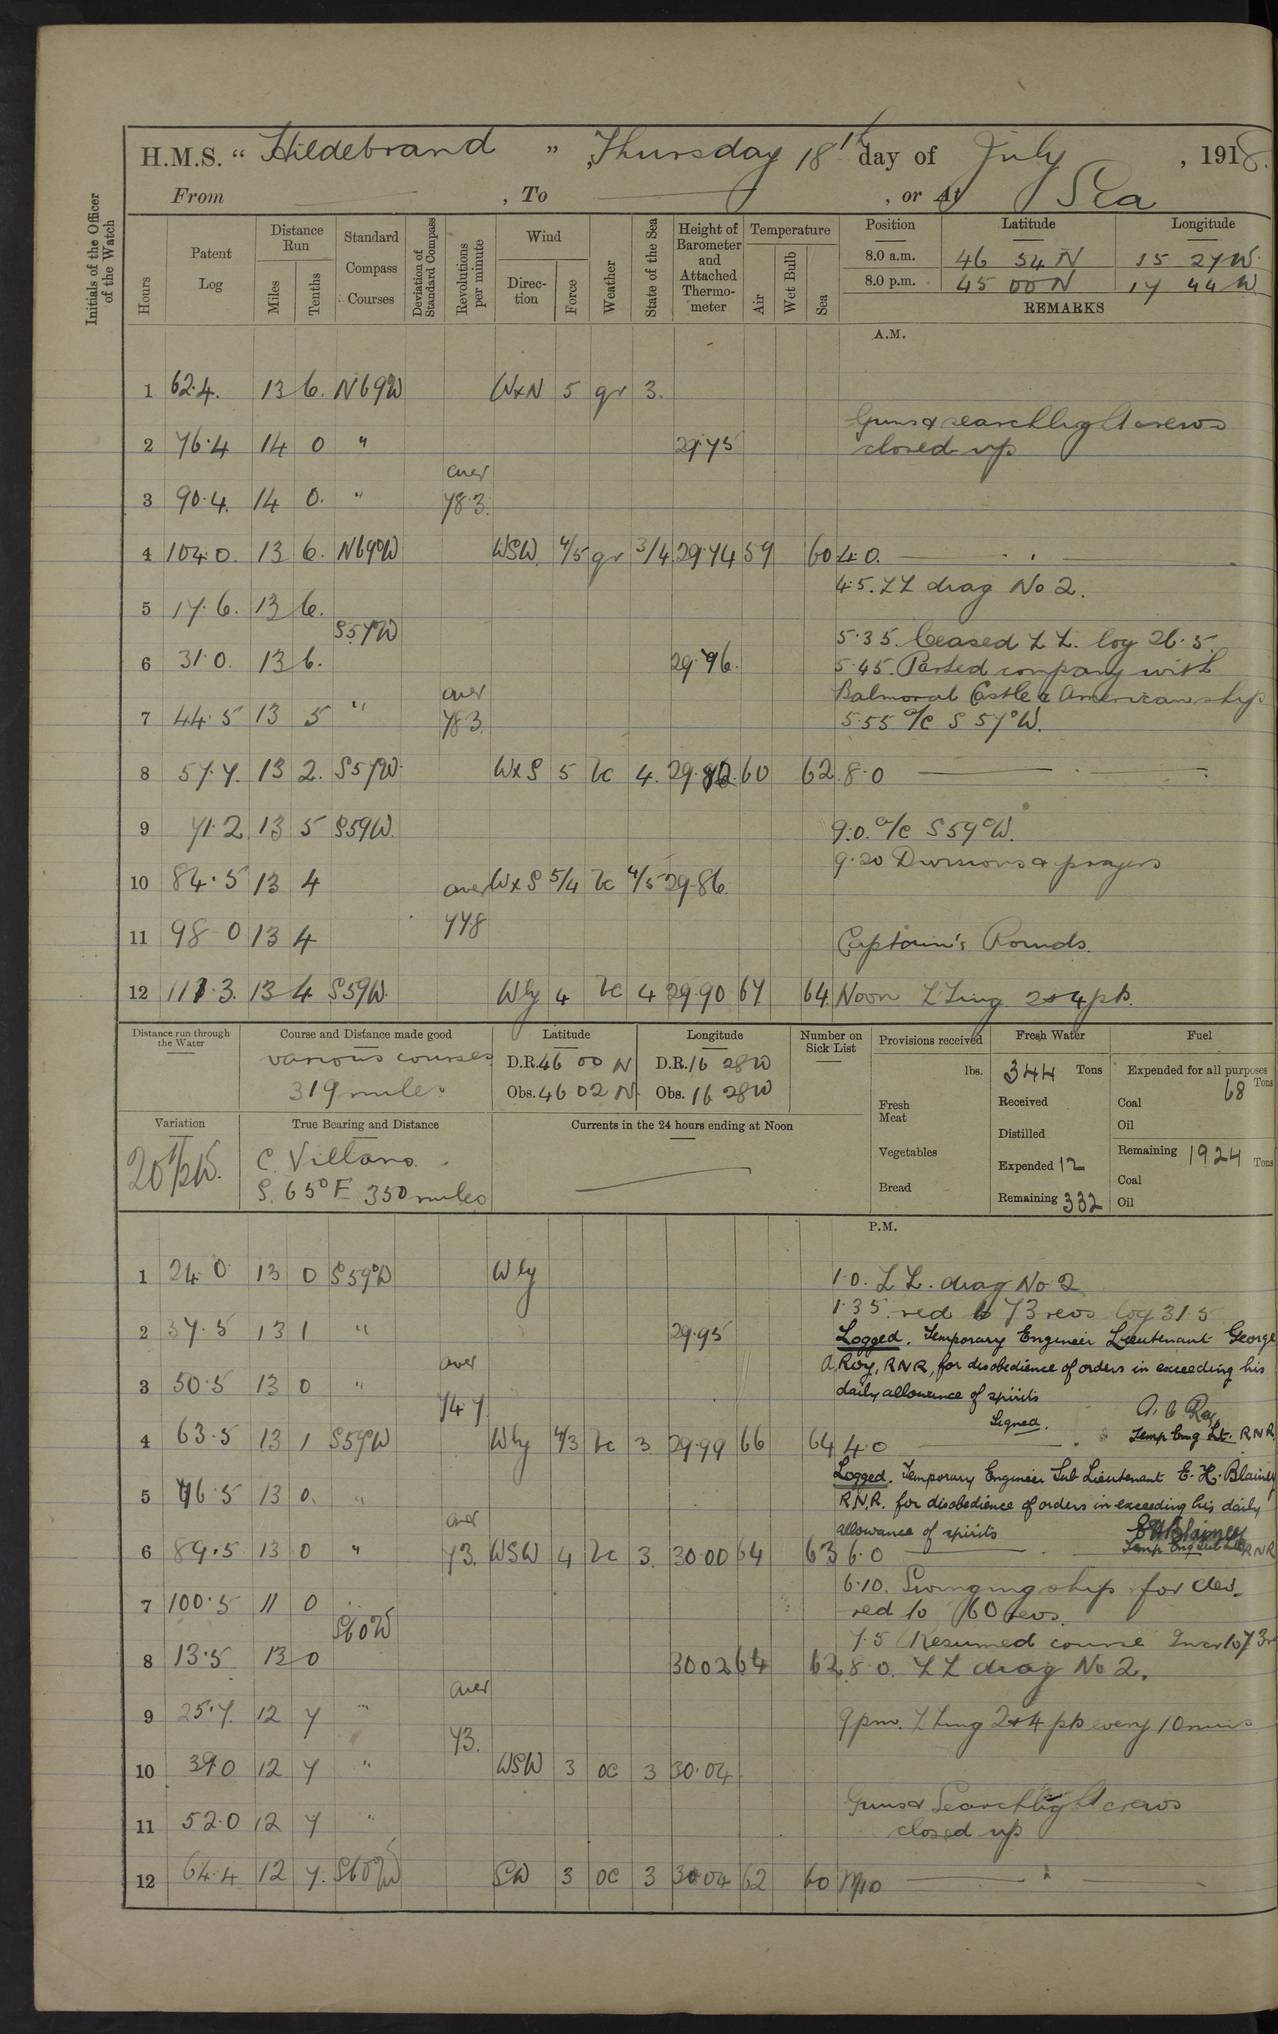 H.M.S. " Hildebrand ", Thursday 18th day of July, 1918.
From , To , or At Sea
Initials of the Officer of the Watch
Hours Patent Log Distance Run Miles Tenths Standard Compass Courses Deviation of Standard Compass Revolutions per minute Wind Direction Force Weather State of the Sea Height of Barometer and Attached Thermometer Temperature Air Wet Bulb Sea
Position Latitude Longitude
8.0 a.m. 46 54 N 15 27 W
8.0 p.m. 45 00 N 17 44 W
REMARKS
A.M.
1 62.4. 13 6. N69W WxN 5 gr 3.
Guns & searchlight crews
2 76.4 14 0 " 29.75 closed up
aver
3 90.4. 14 0. " 78.3.
4 104.0. 13 6. N69°W WSW. 4/5 gr 3/4 29.74 59 60 4.0.
4.5. ZZ drag No 2.
5 17.6. 13 6.
S57°W
5.35. Ceased ZZ. log 26.5.
6 31.0. 13 6. 29.76. 5.45. Parted company with
aver Balmoral Castle & American ship
7 44.5 13 5 " 78.3. 5.55 a/c S 57°W.
8 57.7. 13 2. S57W. WxS 5 bc 4. 29.82. 60 62 8.0
9 71.2 13 5 S59W. 9.0. a/c S59°W.
9.20 Divisions & prayers
10 84.5 13 4 aver WxS 5/4 bc 4/5 29.86.
11 98 0 13 4 77.8 Captain's Rounds.
12 111.3. 13 4 S59W. Wly 4 bc 4 29.90 67 64 Noon ZZing 2 & 4 pts.
Distance run through the Water
Course and Distance made good
various courses
319 miles
Latitude
D.R. 46 00 N
Obs. 46 02 N
Longitude
D.R. 16 28 W
Obs. 16 28 W
Number on Sick List
Provisions received
lbs.
Fresh Meat
Vegetables
Bread
Fresh Water
344 Tons
Received
Distilled
Expended 12
Remaining 332
Fuel
Expended for all purposes
68 Tons
Coal
Oil
Remaining 1924 Tons
Coal
Oil
Variation
20½W.
True Bearing and Distance
C. Villano.
S. 65° E 350 miles
Currents in the 24 hours ending at Noon
P.M.
1 24.0 13 0 S59°W Wly 1.0. ZZ. drag No 2
1.35. red to 73 revs log 31.5
2 37.5 13 1 " 29.95 Logged. Temporary Engineer Lieutenant George
aver A. Roy, RNR, for disobedience of orders in exceeding his
3 50.5 13 0 " 74.7 daily allowance of spirits
Signed.
4 63.5 13 1 S59°W Wly 4/3 bc 3 29.99 66 64 4.0 Temp Eng Lt. RNR
Logged. Temporary Engineer Sub Lieutenant E. H. Blainey
5 76.5 13 0. " R.N.R. for disobedience of orders in exceeding his daily
aver allowance of spirits EHBlainey
6 89.5 13 0 " 73. WSW 4 bc 3. 30.00 64 63 6.0 Temp Eng Sub Lt RNR
6.10. Swinging ship for dev.
7 100.5 11 0 " red to 60 revs.
S60W 7.5 Resumed course
8 13.5 13 0 30.02 64 62 8.0. ZZ drag No 2.
aver
9 25.7. 12 7 " 9pm. ZZing 2&4 pts every 10 mins
73.
10 39.0 12 7 " WSW 3 oc 3 30.04
Guns & Searchlight crews
11 52.0 12 7 " closed up
12 64.4 12 7. S60°W SW 3 oc 3 30.04 62 60 Mid